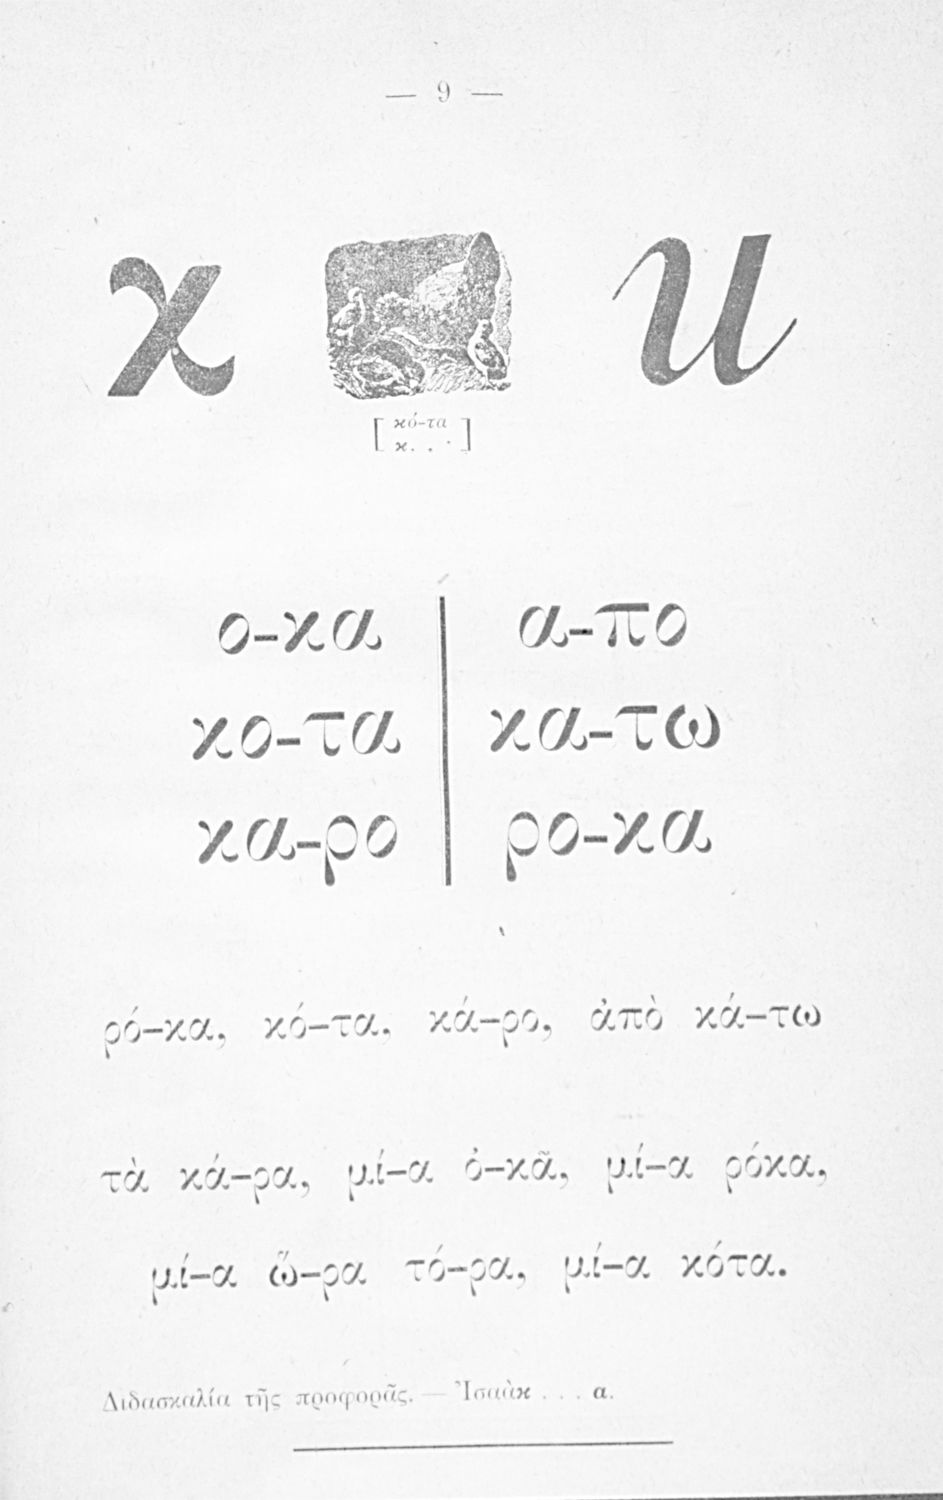 — 9 —
ϰ u
[ ϰό-τα
ϰ. . . ]
ο-ϰα α-πο
ϰο-τα ϰα-τω
ϰα-ρο ρο-ϰα
ρό-ϰα, ϰό-τα, ϰά-ρο, ἀπὸ ϰά-τω
τὰ ϰά-ρα, μί-α ὀ-ϰᾶ, μί-α ρόϰα,
μί-α ὥ-ρα τό-ρα, μί-α ϰότα.
Διδασϰαλία τῆς προφορᾶς. — Ἰσαὰϰ . . . α.